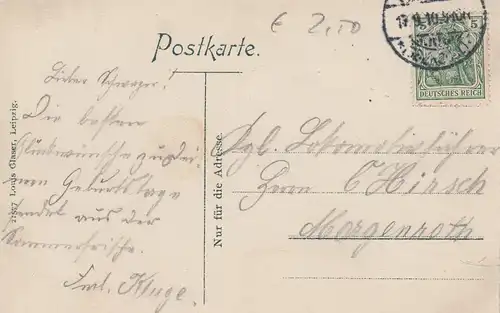 € 2,50
Postkarte.
DEUTSCHES REICH
5
Lieber Schwager!
Die besten
Glückwünsche zu Dei-
nem Geburtstage
sendet aus der
Sommerfrische.
Kluge.
Louis Glaser, Leipzig.
Nur für die Adresse.
Kgl. Lokomotivführer
Herrn C Hirsch
Morgenroth